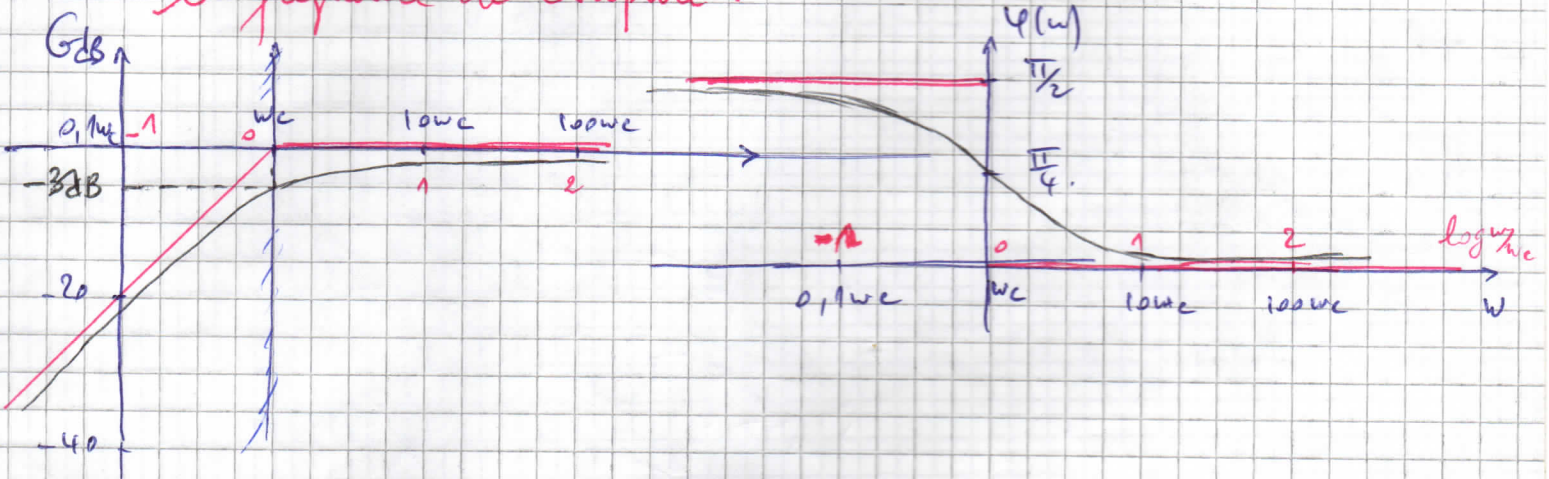 GdB
0,1wc -1 0 wc 10wc 100wc
-3dB 1 2
-20
-40
φ(w)
π/2
π/4.
-1 0 1 2 log w/wc
0,1wc wc 10wc 100wc w